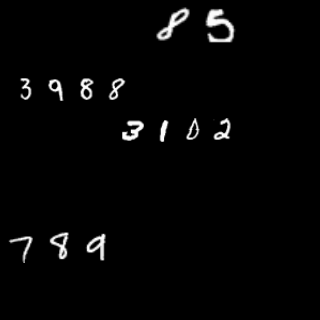 85
3988
3102
789